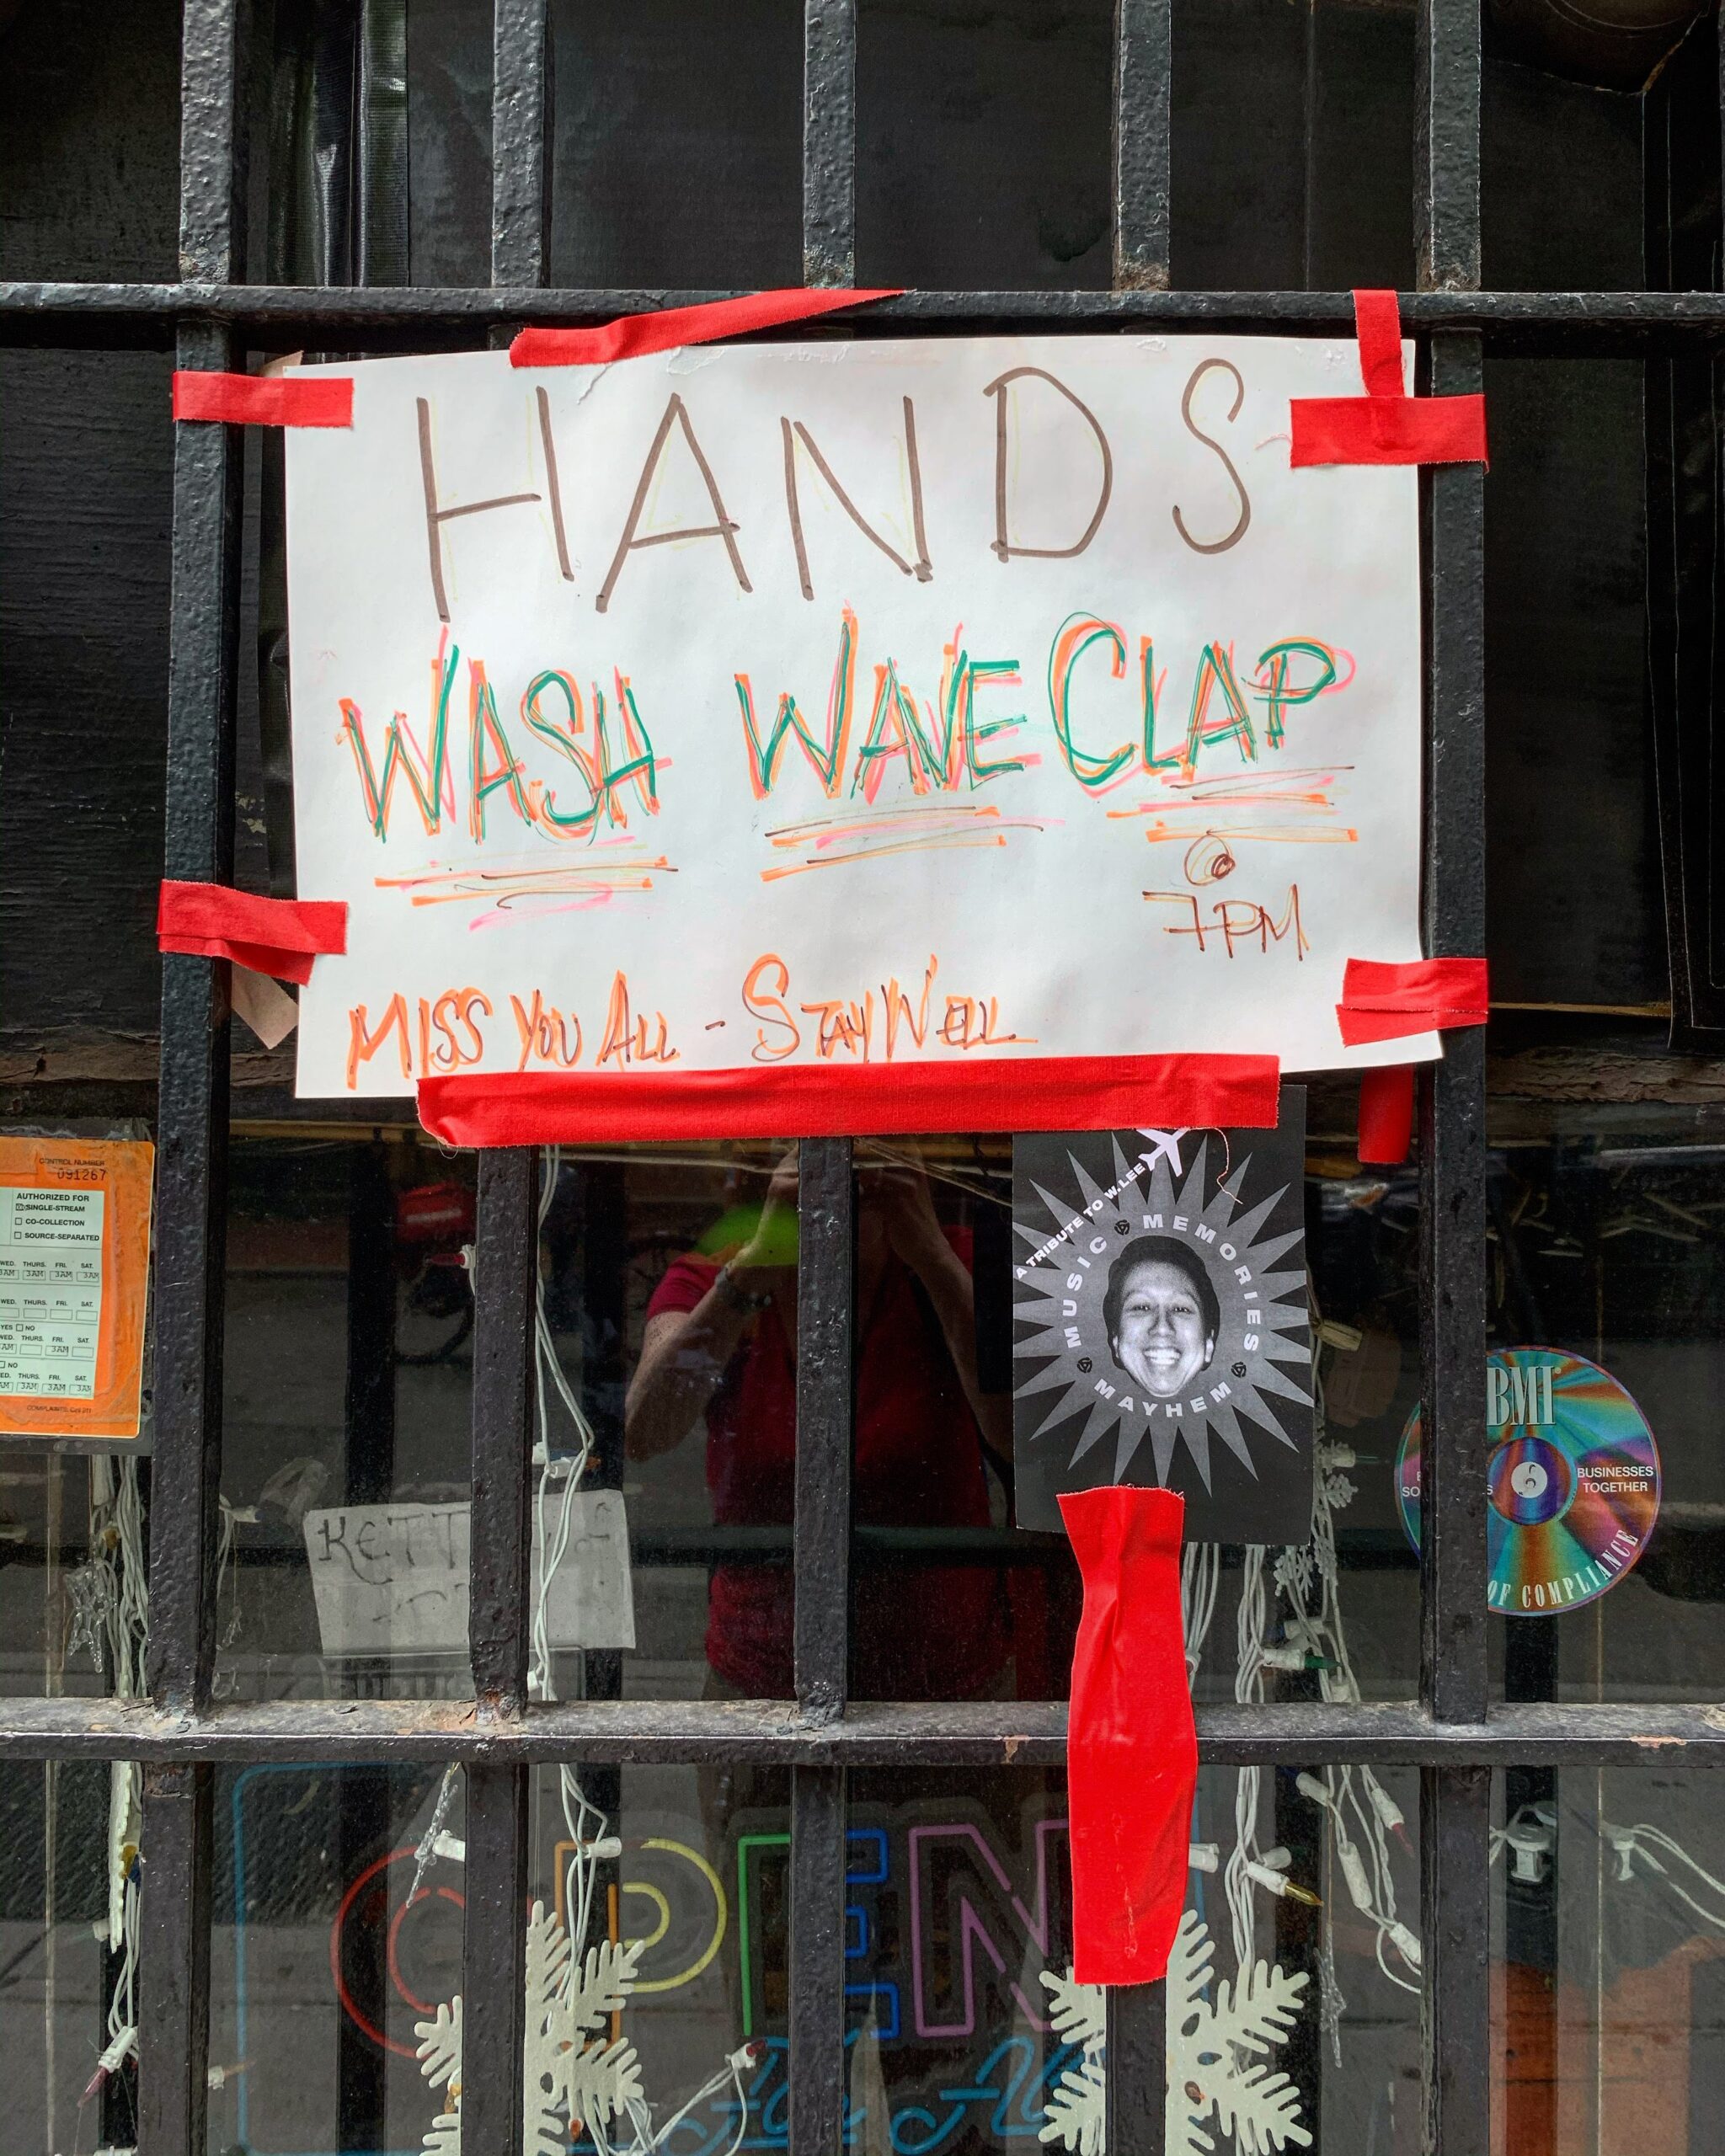 HANDS
WASH WAVE CLAP
@
7PM
MISS YOU ALL - STAY WELL
CONTROL NUMBER
091267
AUTHORIZED FOR
SINGLE-STREAM
CO-COLLECTION
SOURCE-SEPARATED
WED. THURS. FRI. SAT.
3AM 3AM 3AM
WED. THURS. FRI. SAT.
YES NO
WED. THURS. FRI. SAT.
3AM
NO
WED. THURS. FRI. SAT.
3AM 3AM
A TRIBUTE TO W. LEE
MUSIC MEMORIES
MAYHEM
BMI
BUSINESSES
TOGETHER
OF COMPLIANCE
OPEN